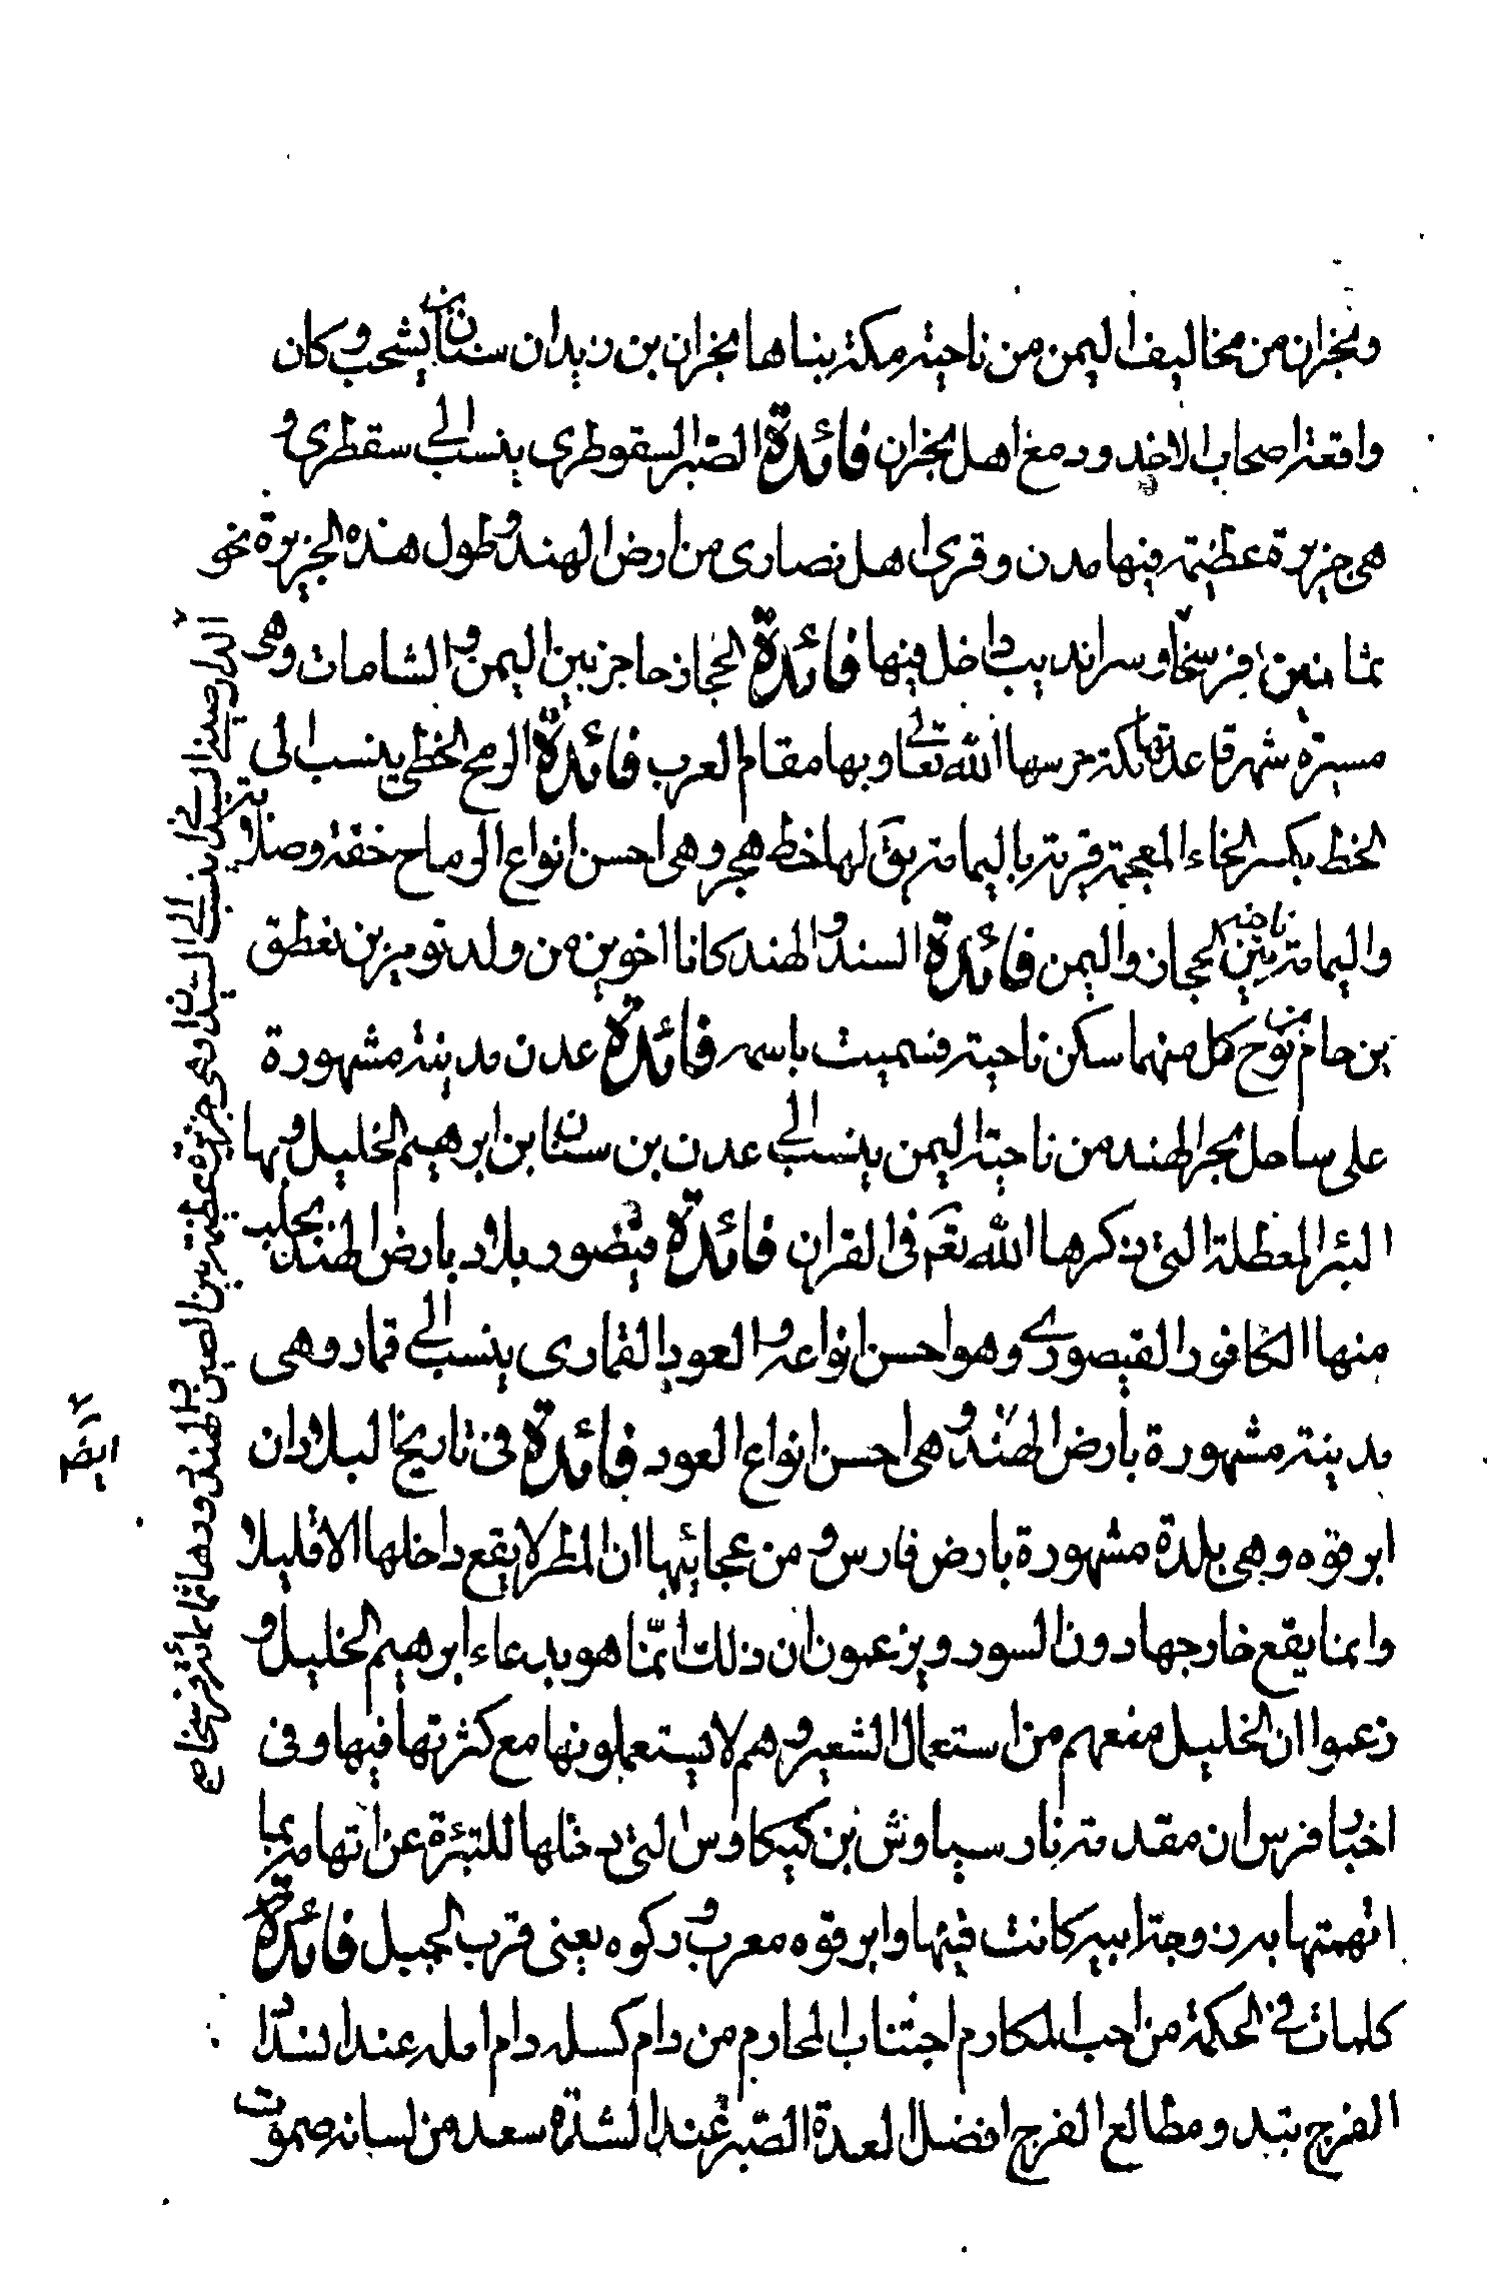 ونجران من مخاليف اليمن من ناحية مكة بناها نجران بن زيدان سنان بن يشحب وكان
واقعة اصحاب الاخدود مع اهل نجران فائدة الصبر السقوطرى ينسب الى سقطرى و
هى جزيرة عظيمة فيها مدن وقرى اهل نصارى من ارض الهند وطول هذه الجزيرة نحو
ثمانين فرسخا وسرانديب داخل فيها فائدة الحجاز حاجز بين اليمن والشامات وهى
مسيرة شهر قاعدتها مكة حرسها الله تعالى وبها مقام العرب فائدة الرمح الخطى ينسب الى
الخط بكسر الخاء المعجمة قرية باليمامة يق لها خط هجر وهى احسن انواع الرماح خفة وصلابة و
واليمامة ناحية بين الحجاز واليمن فائدة السند والهند كانا اخوين من ولد توميز بن نغطق
بن حام بن نوح كل منهما سكن ناحية فسميت باسمه فائدة عدن مدينة مشهورة
على ساحل بحر الهند من ناحية اليمن ينسب الى عدن بن سنان بن ابرهيم الخليل وبها
البئر المعطلة التى ذكرها الله تعم فى القران فائدة قيصور بلاد بارض الهند يجلب
منها الكافور القيصورى وهو احسن انواعه والعود القمارى ينسب الى قمار وهى
مدينة مشهورة بارض الهند وهى احسن انواع العود فائدة فى تاريخ البلادان
ابرقوه وهى بلدة مشهورة بارض فارس ومن عجائبها ان المطر لا يقع داخلها الا قليلا
وانما يقع خارجها دون السور ويزعمون ان ذلك انّما هو بدعاء ابرهيم الخليل و
زعموا ان الخليل منعهم من استعمال الشعير وهم لا يستعملونها مع كثرتها فيها وفى
اخبار فرس ان مقدمة نار سياوش بن كيكاوس التى دخلها للتبرئة عن اتهامه بما
اتهمتها به زوجة ابيه كانت فيها وابرقوه معرب وركوه يعنى قرب الجبل فائدة
كلمات فى الحكمة من احب المكارم اجتناب المحارم من دام كسله دام امله عند انسداد
الفرج تبد ومطالع الفرج افضل العدة الصّبر عند الشدة سعد من لسانه صموت
الدار صينى السيلانى ينسب الى السيلان وهى جزيرة عظيمة بين الصين والهند ودورها ثمانمائة فرسخا صح
ايضم ١٢